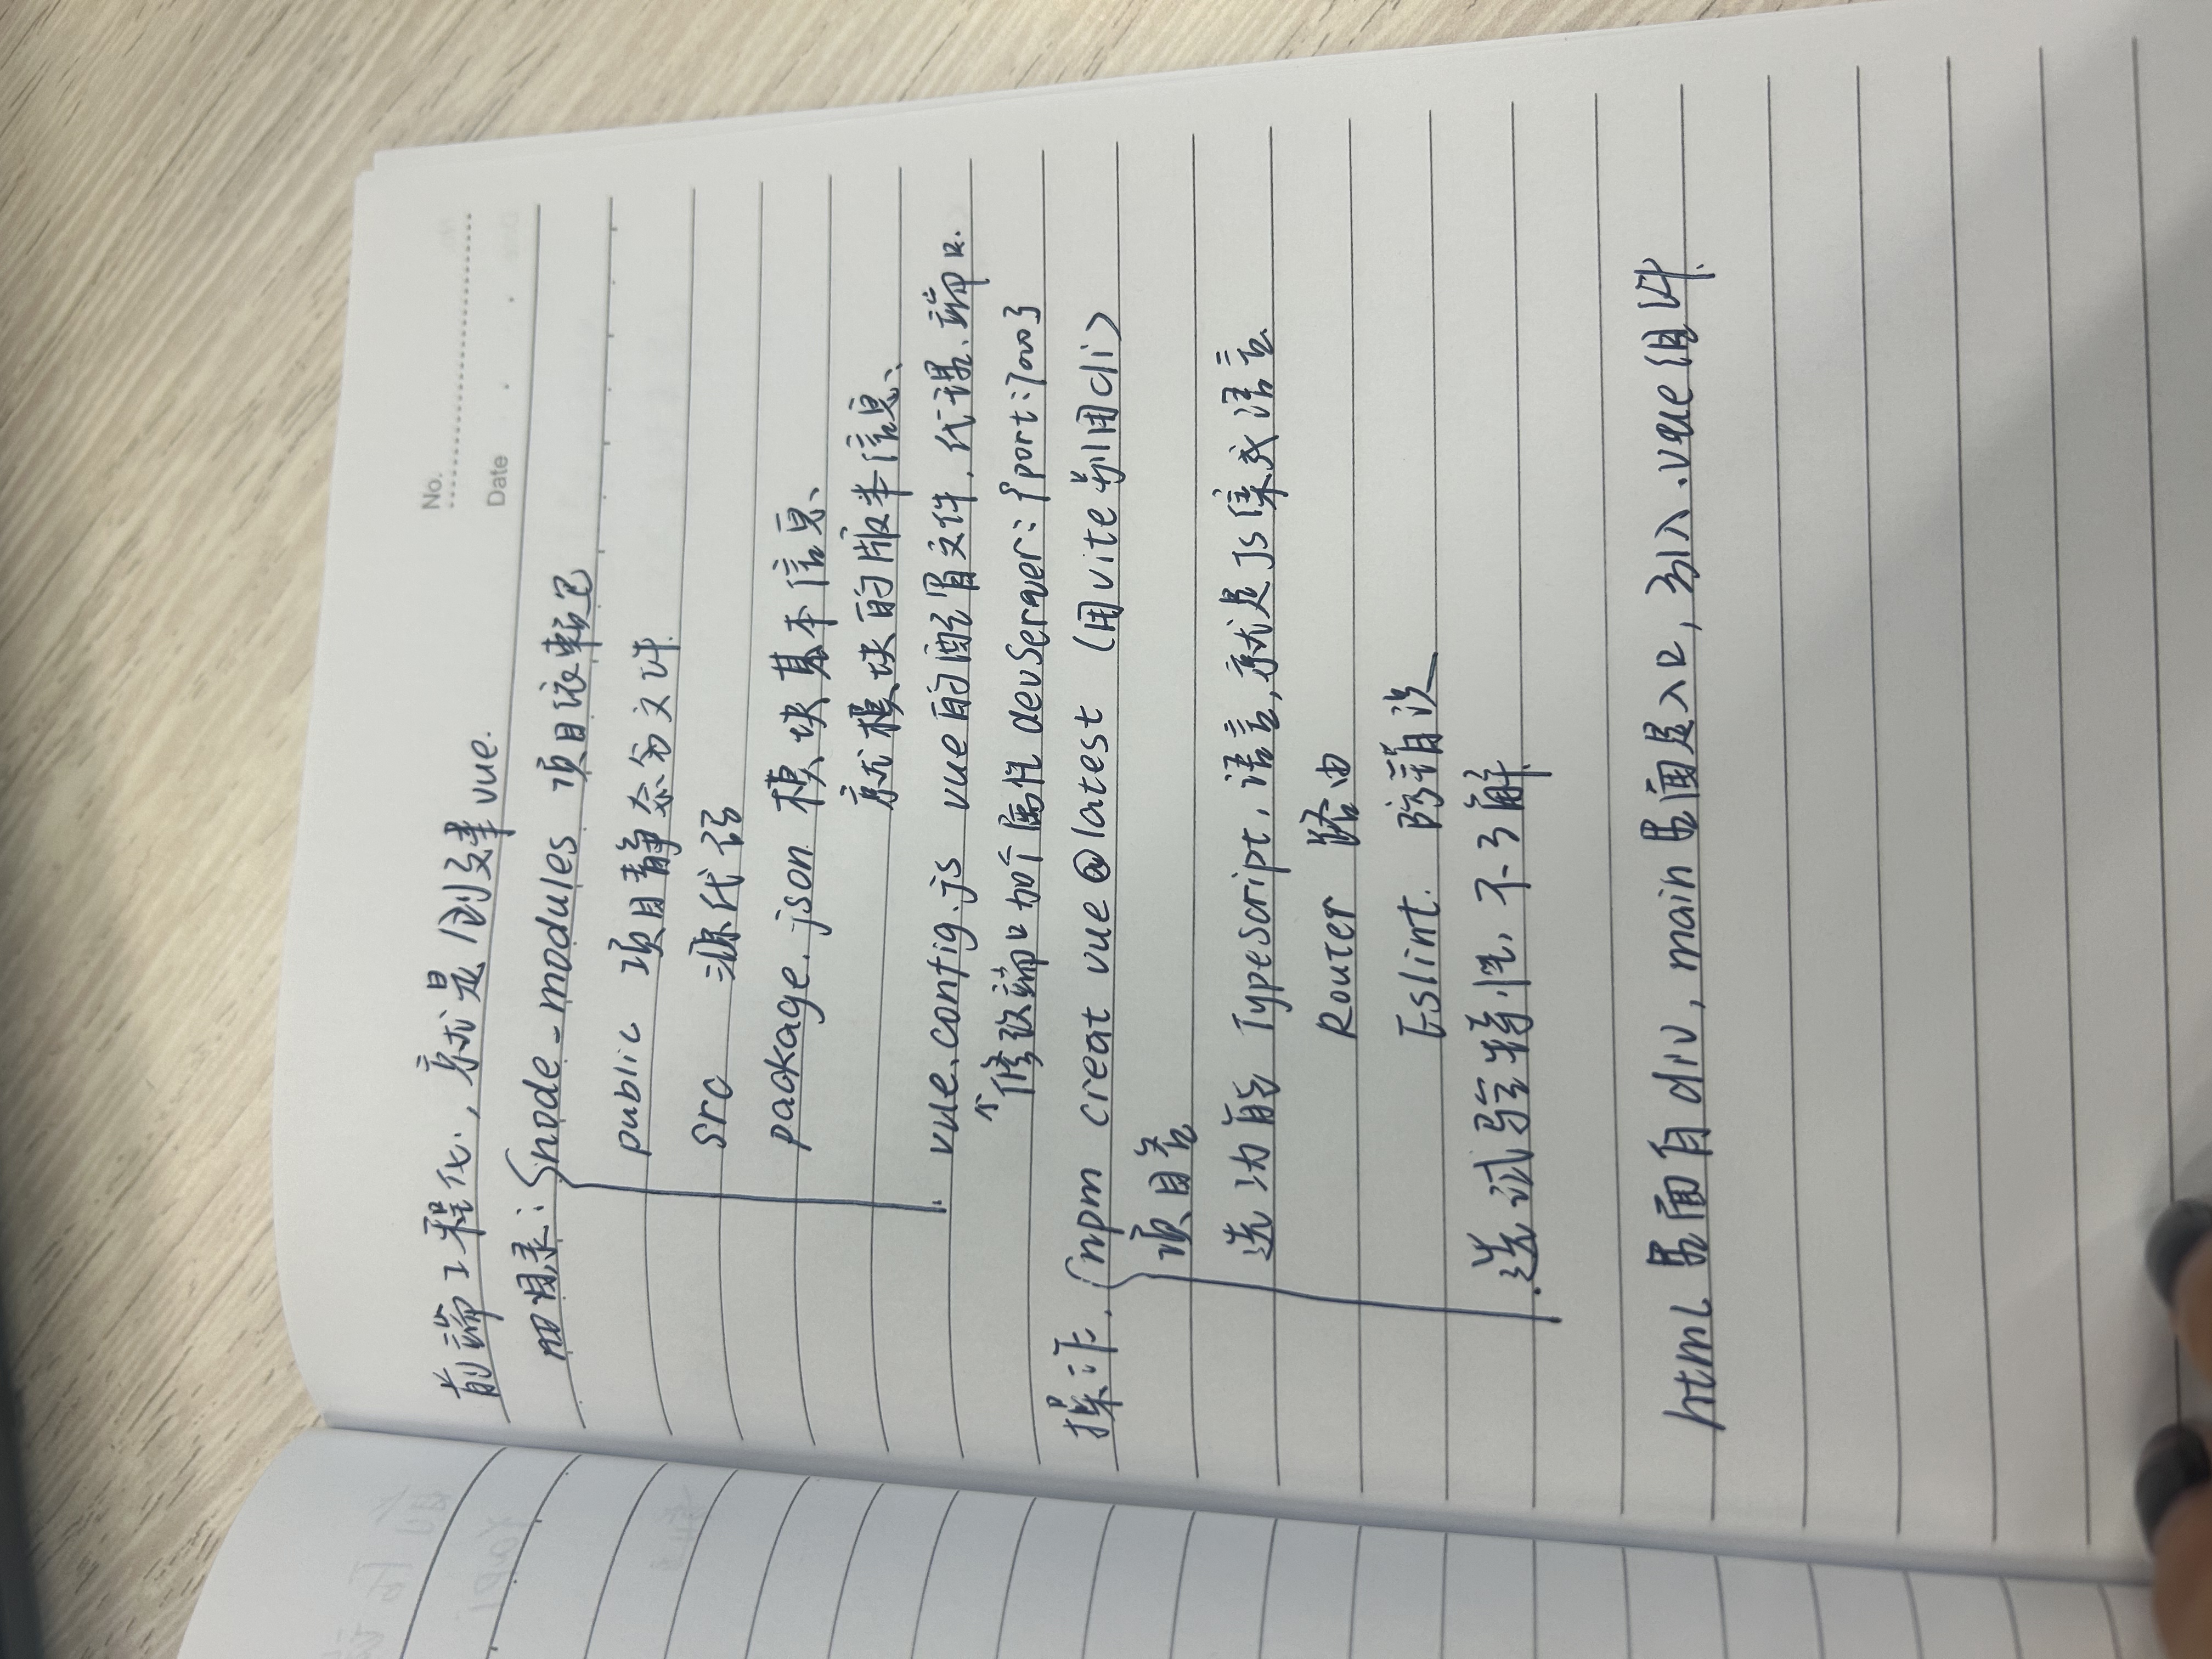 No.
Date
前端工程化,就是创建vue.
目录: node_modules 项目依赖包
public 项目静态文件
src 源代码
package.json 模块基本信息、
就模块的版本信息、
vue.config.js vue的配置文件,代理、端口.
↑修改端口加个属性 devServer:{port:7000}
操作. npm creat vue@latest (用vite别用cli)
项目名
选功能 TypeScript, 语言,就是JS集成语言
Router 路由
Eslint. 防错误
选试验特性,不了解
html界面有div, main界面是入口,引入.vue组件.